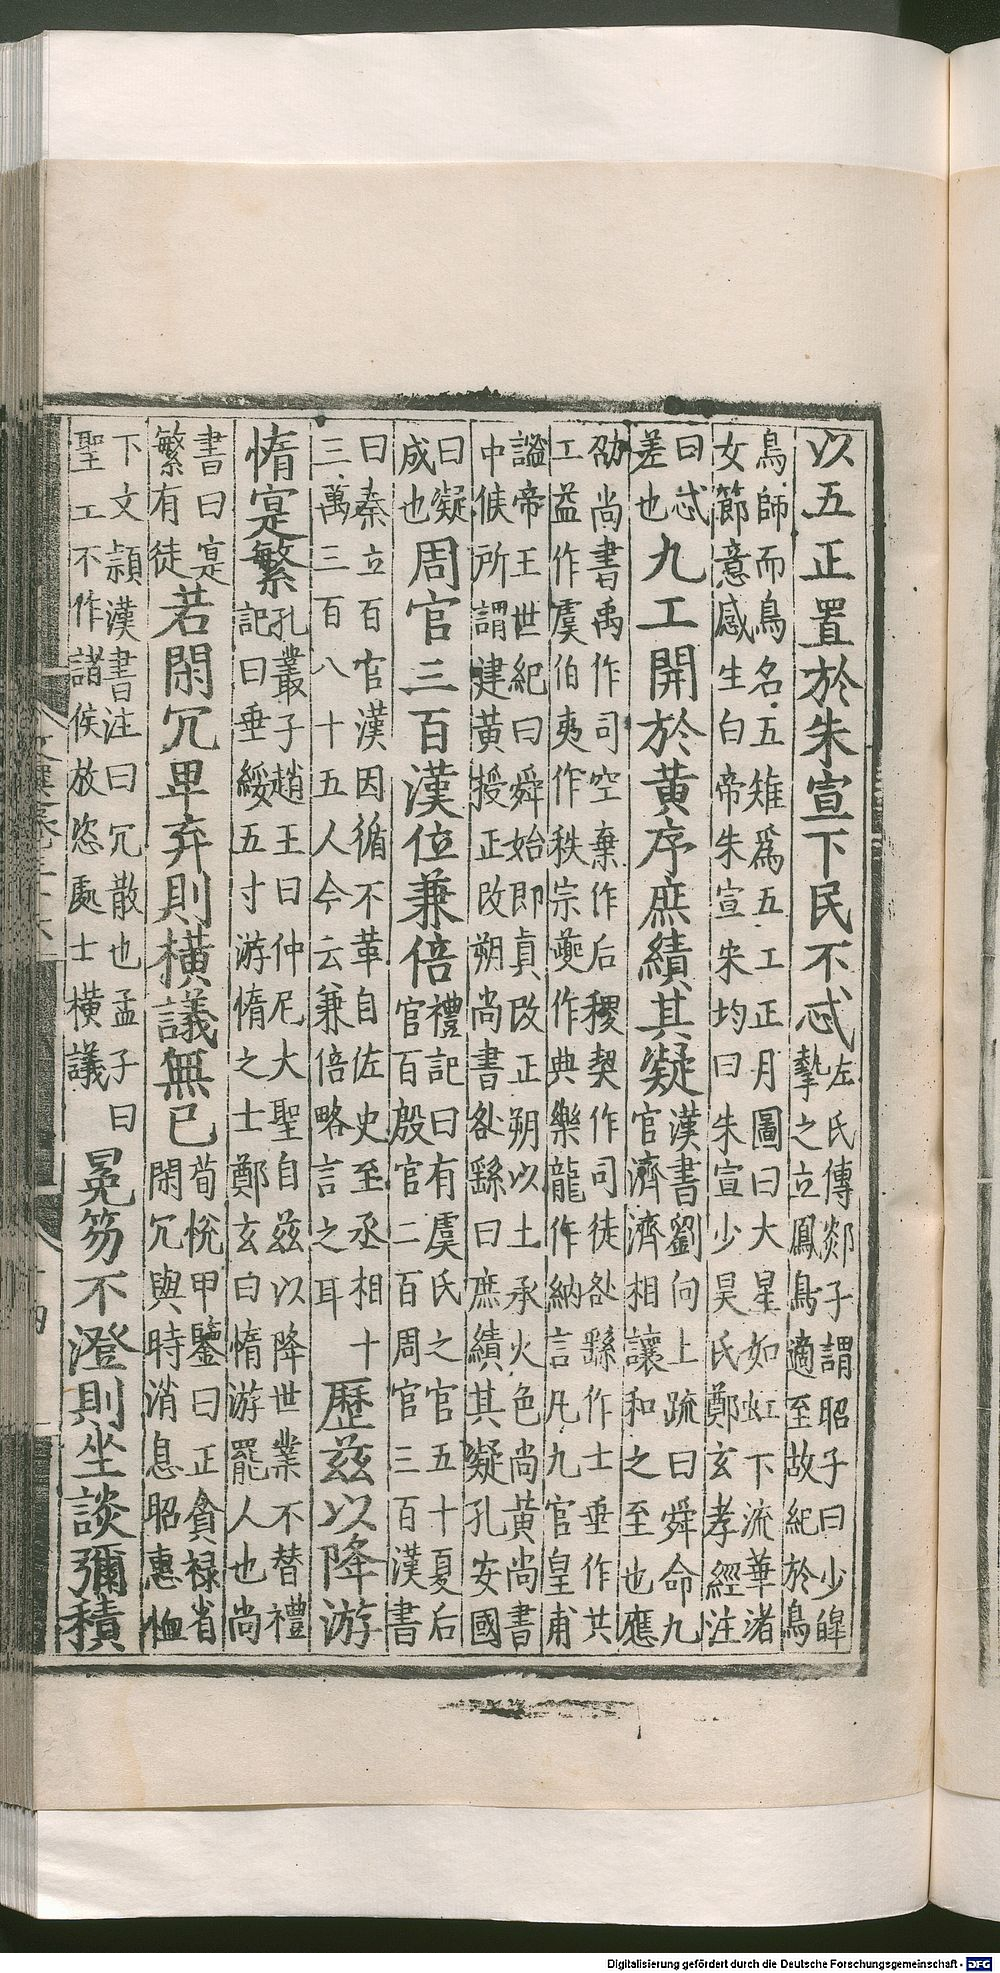 以五正置於朱宣下民不忒左氏傳郯子謂昭子曰少皥
摯之立鳳鳥適至故紀於鳥
鳥師而鳥名五雉爲五工正月圖曰大星如虹下流華渚
女節意感生白帝朱宣宋均曰朱宣少昊氏鄭玄孝經注
曰忒
差也九工開於黄序庶績其凝漢書劉向上疏曰舜命九
官濟濟相讓和之至也應
劭尚書禹作司空棄作后稷契作司徒咎繇作士垂作共
工益作虞伯夷作秩宗夔作典樂龍作納言凡九官皇甫
謐帝王世紀曰舜始即真改正朔以土承火色尚黄尚書
中候所謂建黄授正改朔尚書咎繇曰庶績其凝孔安國
曰凝
成也周官三百漢位兼倍禮記曰有虞氏之官五十夏后
官百殷官二百周官三百漢書
曰秦立百官漢因循不革自佐史至丞相十
三萬三百八十五人今云兼倍略言之耳歷兹以降游
惰寔繁孔叢子趙王曰仲尼大聖自兹以降世業不替禮
記曰垂綏五寸游惰之士鄭玄曰惰游罷人也尚
書曰寔
繁有徒若閑冗畢弃則橫議無已荀悦甲鑒曰正貪禄省
閑冗與時消息昭惠恤
下文頴漢書注曰冗散也孟子曰
聖工不作諸侯放恣處士橫議冕笏不澄則坐談彌積
Digitalisierung gefördert durch die Deutsche Forschungsgemeinschaft - DFG